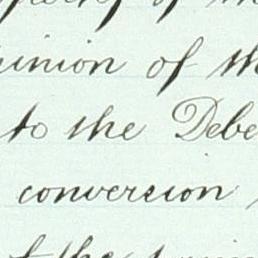 of
inion of th
to the Debe
conversion
of the